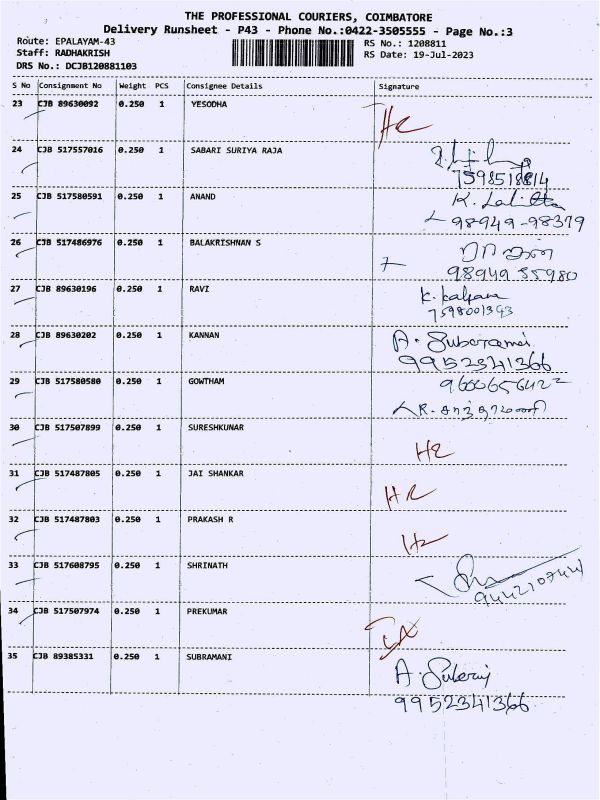 THE PROFESSIONAL COURIERS, COIMBATORE
Delivery Runsheet - P43 - Phone No.:0422-3505555 - Page No.:3
Route: EPALAYAM-43
RS No.: 1208811
Staff: RADHAKRISH
RS Date: 19-Jul-2023
DRS No.: DCJB120881103
S No Consignment No Weight PCS Consignee Details Signature
23 CJB 89630092 0.250 1 YESODHA
24 CJB 517557016 0.250 1 SABARI SURIYA RAJA
25 CJB 517580591 0.250 1 ANAND K. Lalitha
98949-98379
26 CJB 517486976 0.250 1 BALAKRISHNAN S
98949 55980
27 CJB 89630196 0.250 1 RAVI K. Kalpana
7598001393
28 CJB 89630202 0.250 1 KANNAN
9952341366
29 CJB 517580580 0.250 1 GOWTHAM
30 CJB 517507899 0.250 1 SURESHKUNAR
31 CJB 517487805 0.250 1 JAI SHANKAR
32 CJB 517487803 0.250 1 PRAKASH R
33 CJB 517608795 0.250 1 SHRINATH
34 CJB 517507974 0.250 1 PREKUMAR
35 CJB 89385331 0.250 1 SUBRAMANI
9952341366